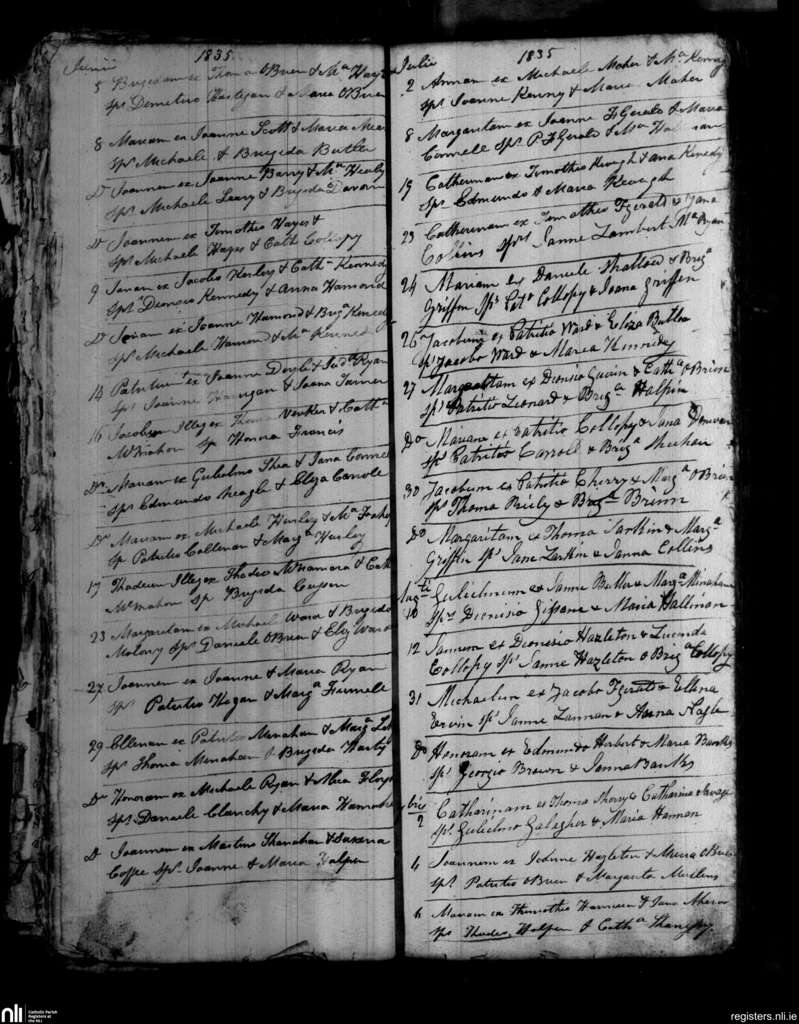 Junii 1835
5 Brigidam ex Thoma OBrien & Ma
sps Demetrio Hartigan & Maria OBrien
8 Mariam ex Joanne Scott & Maria
sps Michaele & Brigida Butler
Do Joannem ex Joanne Barry & Ma Healy
sps Michaele Leary & Brigida
Do Joannem ex Timotheo Hayes &
sps Michaele Hayes & Cath Collopy
9 Joanam ex Jacobo Kerley & Cath Kennedy
sps Dionisio Kennedy & Anna Hamond
Do ex Joanne Hamond & Brigt Kenedy
sps Michaele Hamond & Ma Kennedy
14 Patritium ex Joanne Doyle & Juda Ryan
sps Joanne & Joana
16 Jacobum Illeg ex Thoma & Catha
McMahon sp Honora Francis
Do Mariam ex Gulielmo Shea & Jana
sps Edmundo Neagle & Eliza Carrole
Do Mariam ex Michaele Hurley & Ma
sp Patritio Callenan & Marga Hurley
17 Thadeum Illeg ex Thadeo McNamara & Cath
McMahon sp Brigida
23 Margaritam ex Michael Ward & Brigida
Molony sps Daniele OBrien & Eliz Ward
27 Joannem ex Joanne & Maria Ryan
sps Patritio Hogan & Marga
29 Ellenam ex Patritio Minahan & Marga
sps Thoma Minahan & Brigida
Do Honoram ex Michaele Ryan &
sps Daniele Clanchy & Maria
Do Joannem ex Martino Shanahan & Susana
Coffee sps Joanne & Maria Halpen
Julii 1835
2 Annam ex Michaele Maher & Ma Kenny
sps Joanne Kenny & Maria Maher
8 Margaritam ex Joanne FGerald & Maria
Connell sps P FGerald & Ma
19 Catherinam ex Timotheo Keough & Ana Kenedy
sps Edmundo & Maria Keough
23 Catherinam ex Timotheo Fgerald & Jana
Collins sps Janne Lambert Ma Ryan
24 Mariam ex Daniele Shallow & Briga
Griffin sps Patt Collopy & Joana Griffin
26 Jacobum ex Patritio Ward & Eliza Butler
sps Jacobo Ward & Maria Kennedy
27 Margaritam ex Dionisio Gavin & Catha OBrien
sps Patritio Leonard & Briga Halpin
Do Mariam ex Patritio Collopy & Jana
sps Patritio Carroll & Briga Sheehan
30 Jacobum ex Patritio Cherry & Marga OBrien
sps Thoma Reily & Briga Brinn
Do Margaritam ex Thoma Larkin & Marga
Griffin sps Jane Larkin & Janna Collins
Augti
10 Gulielmum ex Janne Butler & Marga Minahan
sps Dionisio & Maria Hallinan
12 Jannem ex Dionesio Hazleton & Lucinda
Collopy sps Janne Hazleton & Briga Collopy
31 Michaelem ex Jacobo Fgerald & Ellena
Ervin sps Janne Lannan & Anna Nagle
Do Honoram ex Edmundo Herbert & Maria Banks
sps Georgio Brown & Janna Banks
bris
2 Catharinam ex Thoma & Catharina Savage
sps Gulielmo Galagher & Maria Hannan
4 Joannem ex Joanne Hazleton & Maria OBrien
sps Patritio OBrien & Margarita
6 Mariam ex Thimotheo & Jana Ahern
sps Thadeo Halpen & Catha
nli
Catholic Parish
Registers at
the NLI
registers.nli.ie